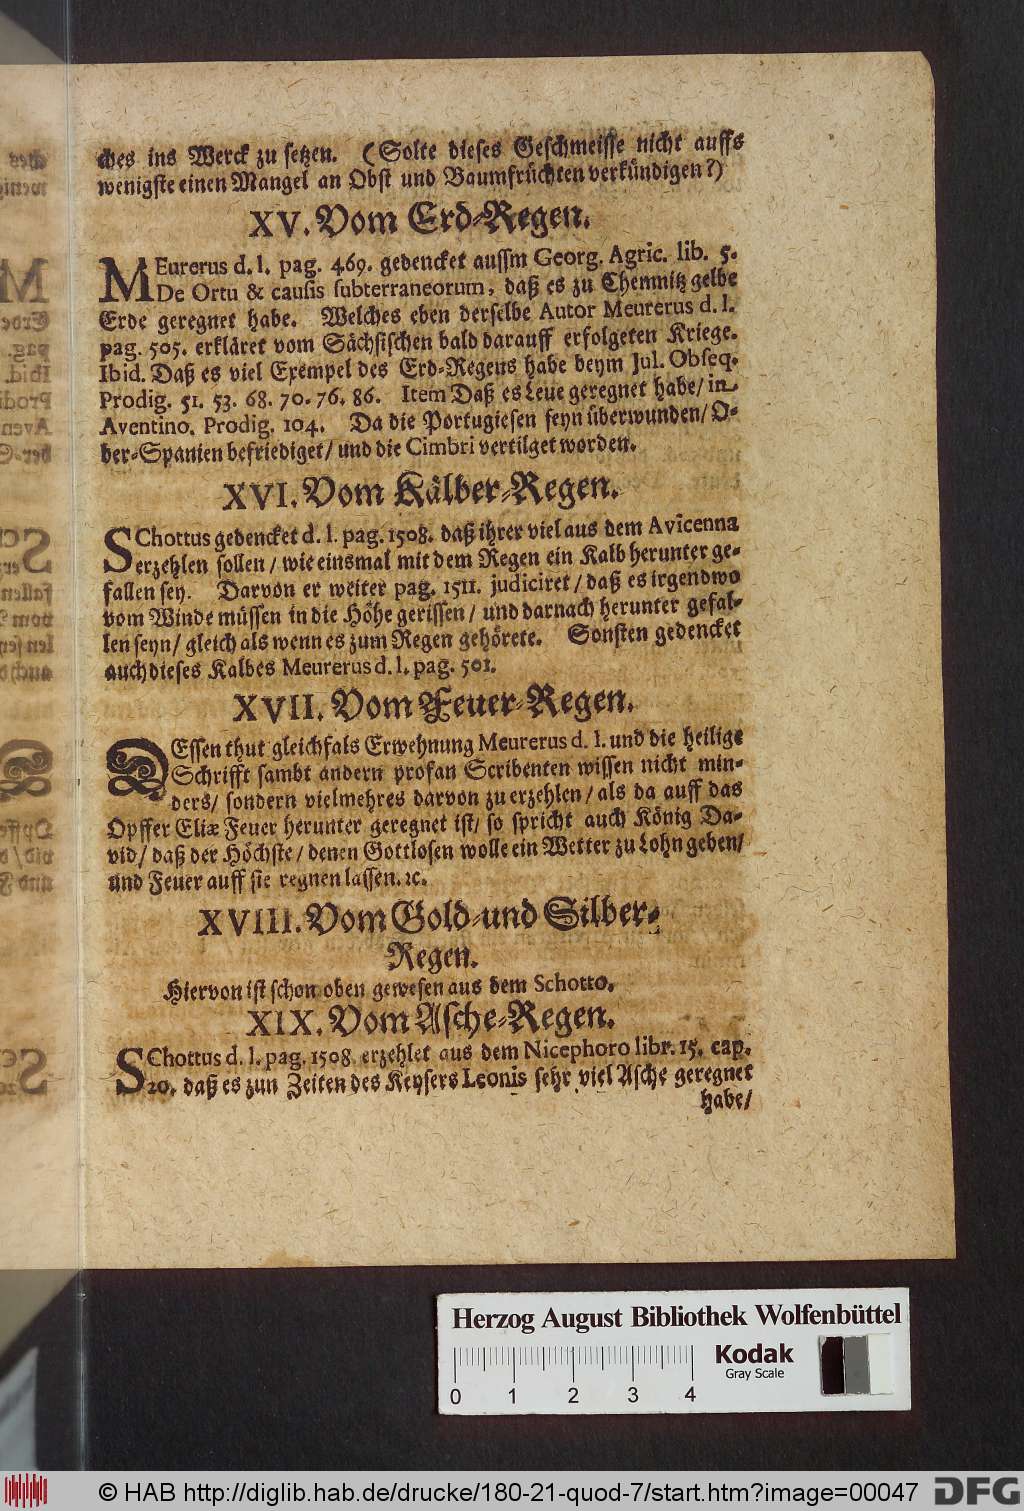 ches ins Werck zu setzen. (Solte dieses Geschmeisse nicht auffs
wenigste einen Mangel an Obst und Baumfrüchten verkündigen?)
XV. Vom Erd-Regen.
MEurerus d. l. pag. 469. gedencket aussm Georg. Agric. lib. 5.
De Ortu & causis subterraneorum, daß es zu Chemnitz gelbe
Erde geregnet habe. Welches eben derselbe Autor Meurerus d. l.
pag. 505. erkläret vom Sächsischen bald darauff erfolgeten Kriege.
Ibid. Daß es viel Exempel des Erd-Regens habe beym Jul. Obseq.
Prodig. 51. 53. 68. 70. 76. 86. Item Daß es Leue geregnet habe/ in
Aventino. Prodig. 104. Da die Portugiesen seyn überwunden/ O-
ber-Spanien befriediget/ und die Cimbri vertilget worden.
XVI. Vom Kälber-Regen.
SChottus gedencket d. l. pag. 1508. daß ihrer viel aus dem Avicenna
erzehlen sollen/ wie einsmal mit dem Regen ein Kalb herunter ge-
fallen sey. Darvon er weiter pag. 1511. judiciret/ daß es irgendwo
vom Winde müssen in die Höhe gerissen/ und darnach herunter gefal-
len seyn/ gleich als wenn es zum Regen gehörete. Sonsten gedencket
auch dieses Kalbes Meurerus d. l. pag. 501.
XVII. Vom Feuer-Regen.
DEssen thut gleichfals Erwehnung Meurerus d. l. und die heilige
Schrifft sambt andern profan Scribenten wissen nicht min-
ders/ sondern vielmehres darvon zu erzehlen/ als da auff das
Opffer Eliæ Feuer herunter geregnet ist/ so spricht auch König Da-
vid/ daß der Höchste/ denen Gottlosen wolle ein Wetter zu Lohn geben/
und Feuer auff sie regnen lassen. ꝛc.
XVIII. Vom Gold-und Silber-
Regen.
Hiervon ist schon oben gewesen aus dem Schotto.
XIX. Vom Asche-Regen.
SChottus d. l. pag. 1508. erzehlet aus dem Nicephoro libr. 15. cap.
20. daß es zun Zeiten des Keysers Leonis sehr viel Asche geregnet
habe/
Herzog August Bibliothek Wolfenbüttel
Kodak
Gray Scale
0 1 2 3 4
© HAB http://diglib.hab.de/drucke/180-21-quod-7/start.htm?image=00047
DFG